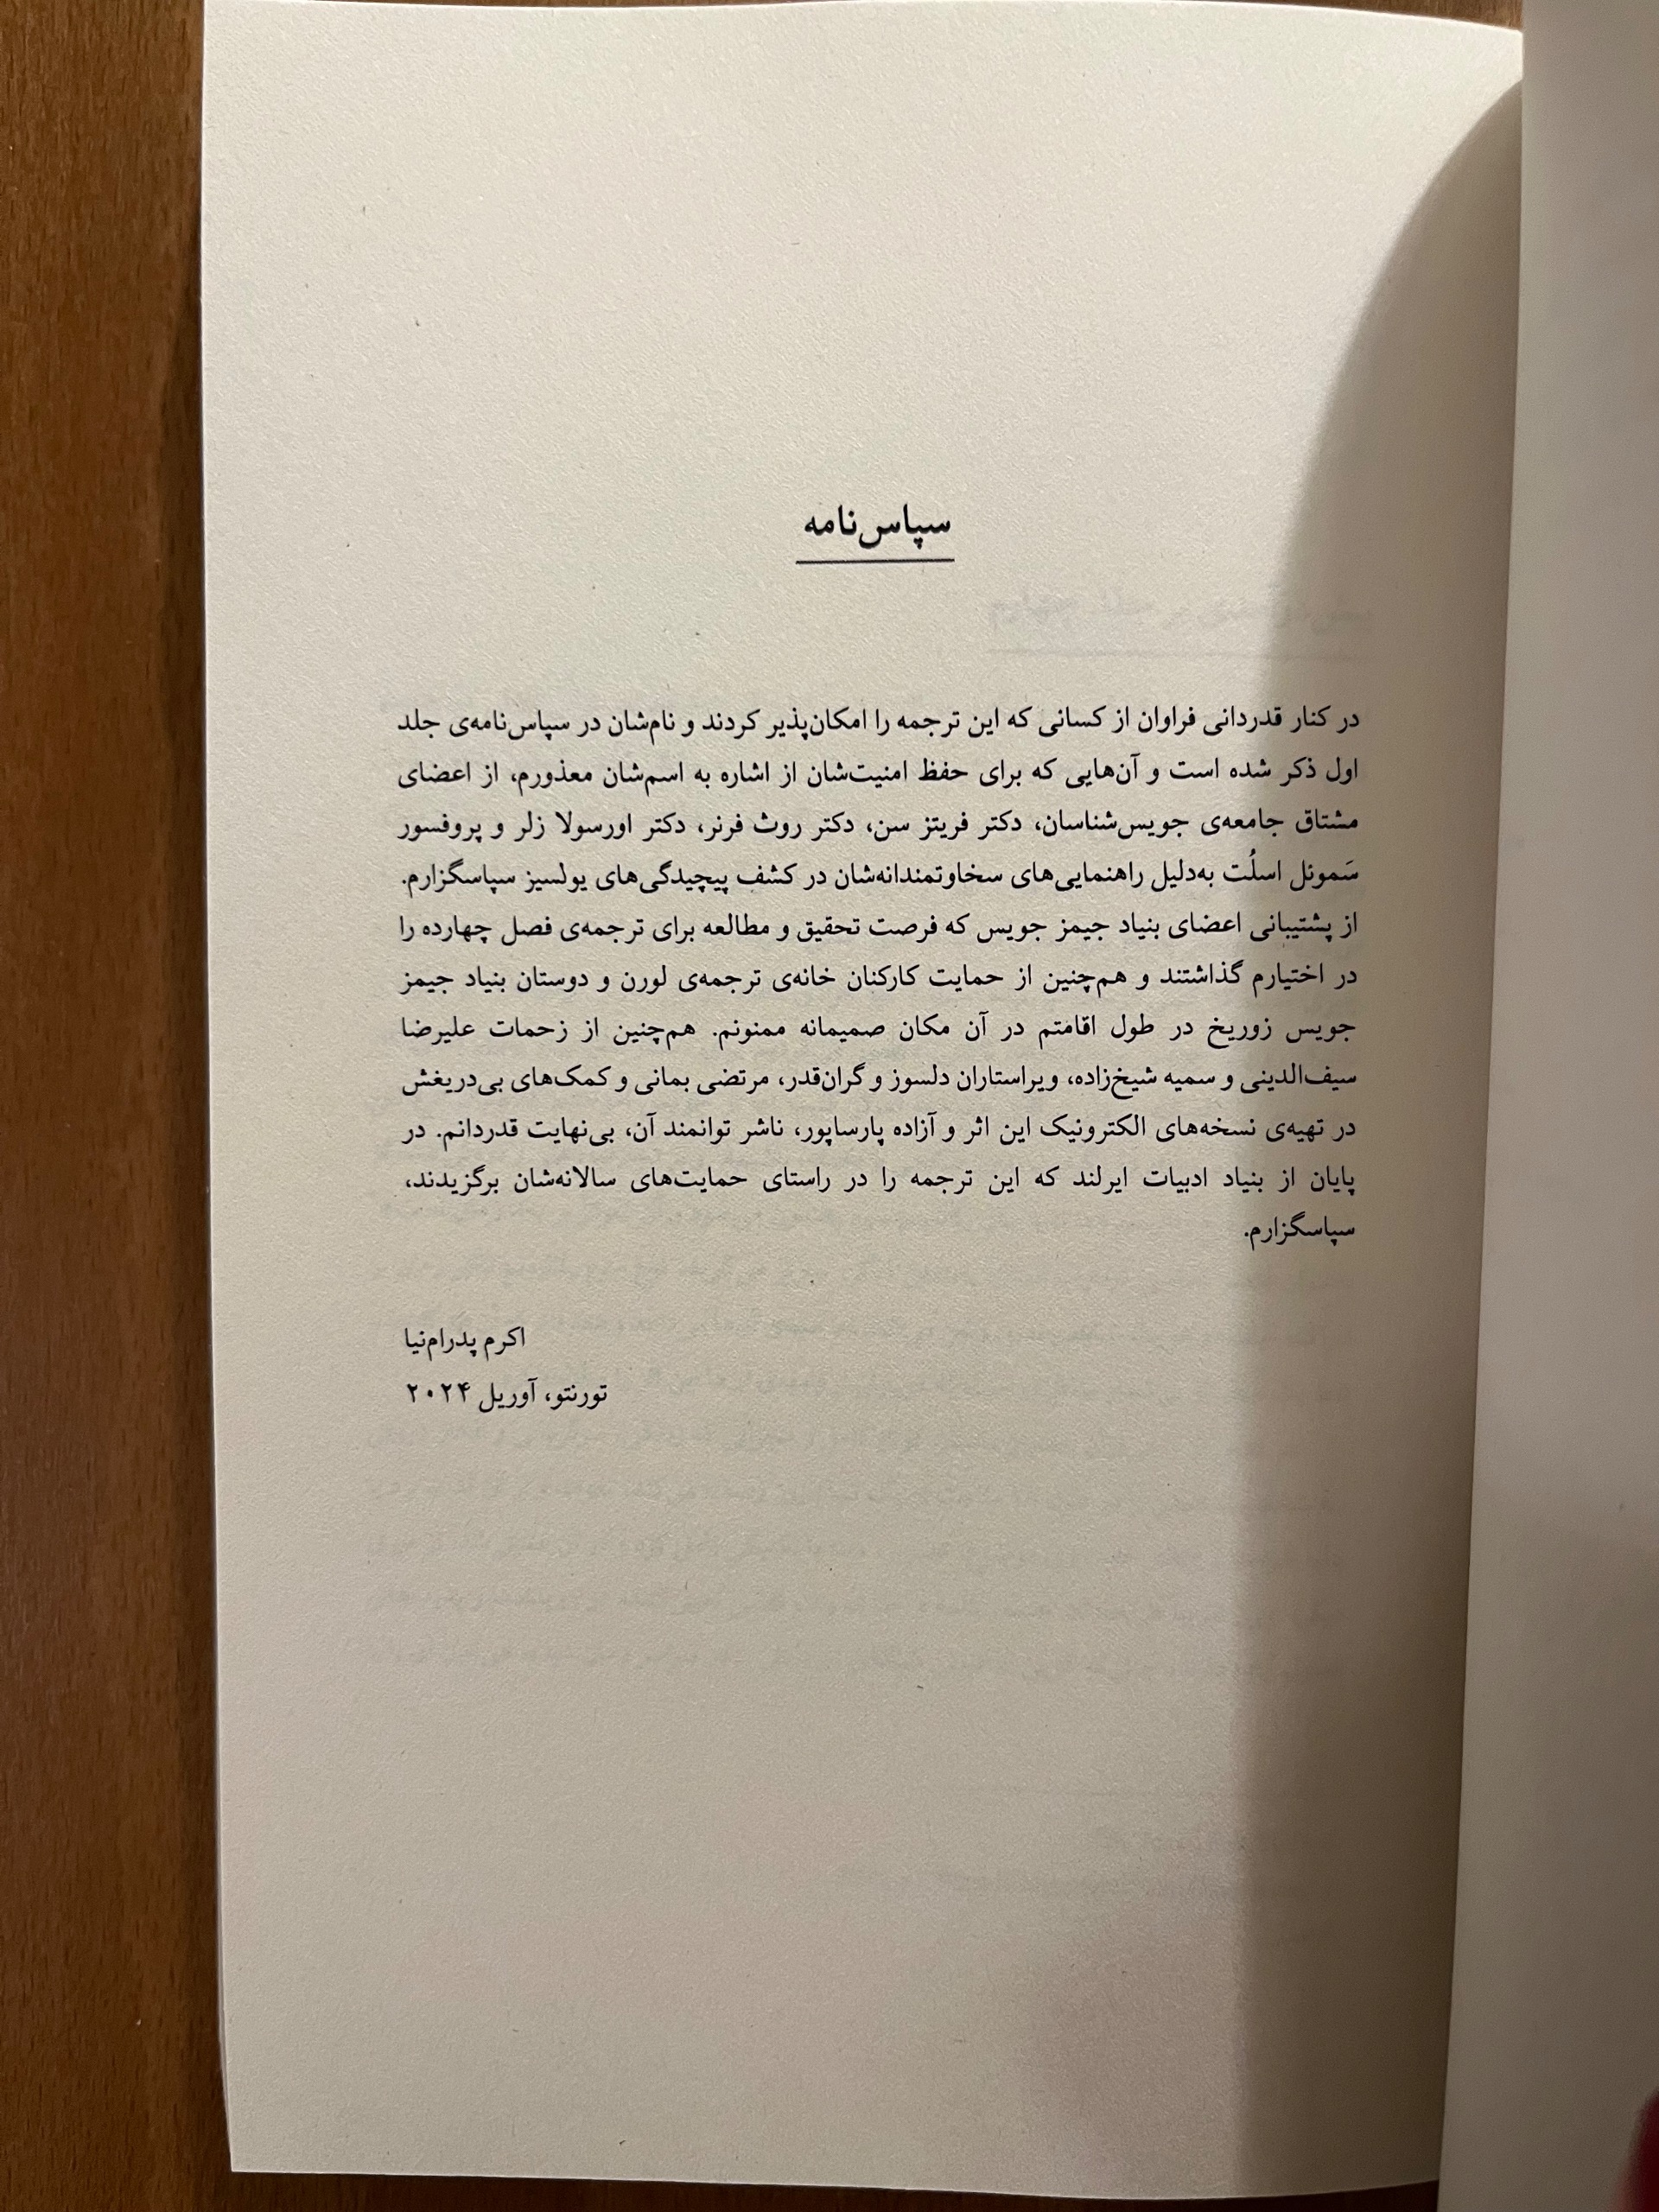 سپاس‌نامه
در کنار قدردانی فراوان از کسانی که این ترجمه را امکان‌پذیر کردند و نام‌شان در سپاس‌نامه‌ی جلد
اول ذکر شده است و آن‌هایی که برای حفظ امنیت‌شان از اشاره به اسم‌شان معذورم، از اعضای
مشتاق جامعه‌ی جویس‌شناسان، دکتر فریتز سن، دکتر روث فرنر، دکتر اورسولا زلر و پروفسور
سَموئل اسلُت به‌دلیل راهنمایی‌های سخاوتمندانه‌شان در کشف پیچیدگی‌های یولسیز سپاسگزارم.
از پشتیبانی اعضای بنیاد جیمز جویس که فرصت تحقیق و مطالعه برای ترجمه‌ی فصل چهارده را
در اختیارم گذاشتند و هم‌چنین از حمایت کارکنان خانه‌ی ترجمه‌ی لورن و دوستان بنیاد جیمز
جویس زوریخ در طول اقامتم در آن مکان صمیمانه ممنونم. هم‌چنین از زحمات علیرضا
سیف‌الدینی و سمیه شیخ‌زاده، ویراستاران دلسوز و گران‌قدر، مرتضی یمانی و کمک‌های بی‌دریغش
در تهیه‌ی نسخه‌های الکترونیک این اثر و آزاده پارساپور، ناشر توانمند آن، بی‌نهایت قدردانم. در
پایان از بنیاد ادبیات ایرلند که این ترجمه را در راستای حمایت‌های سالانه‌شان برگزیدند،
سپاسگزارم.
اکرم پدرام‌نیا
تورنتو، آوریل ۲۰۲۴